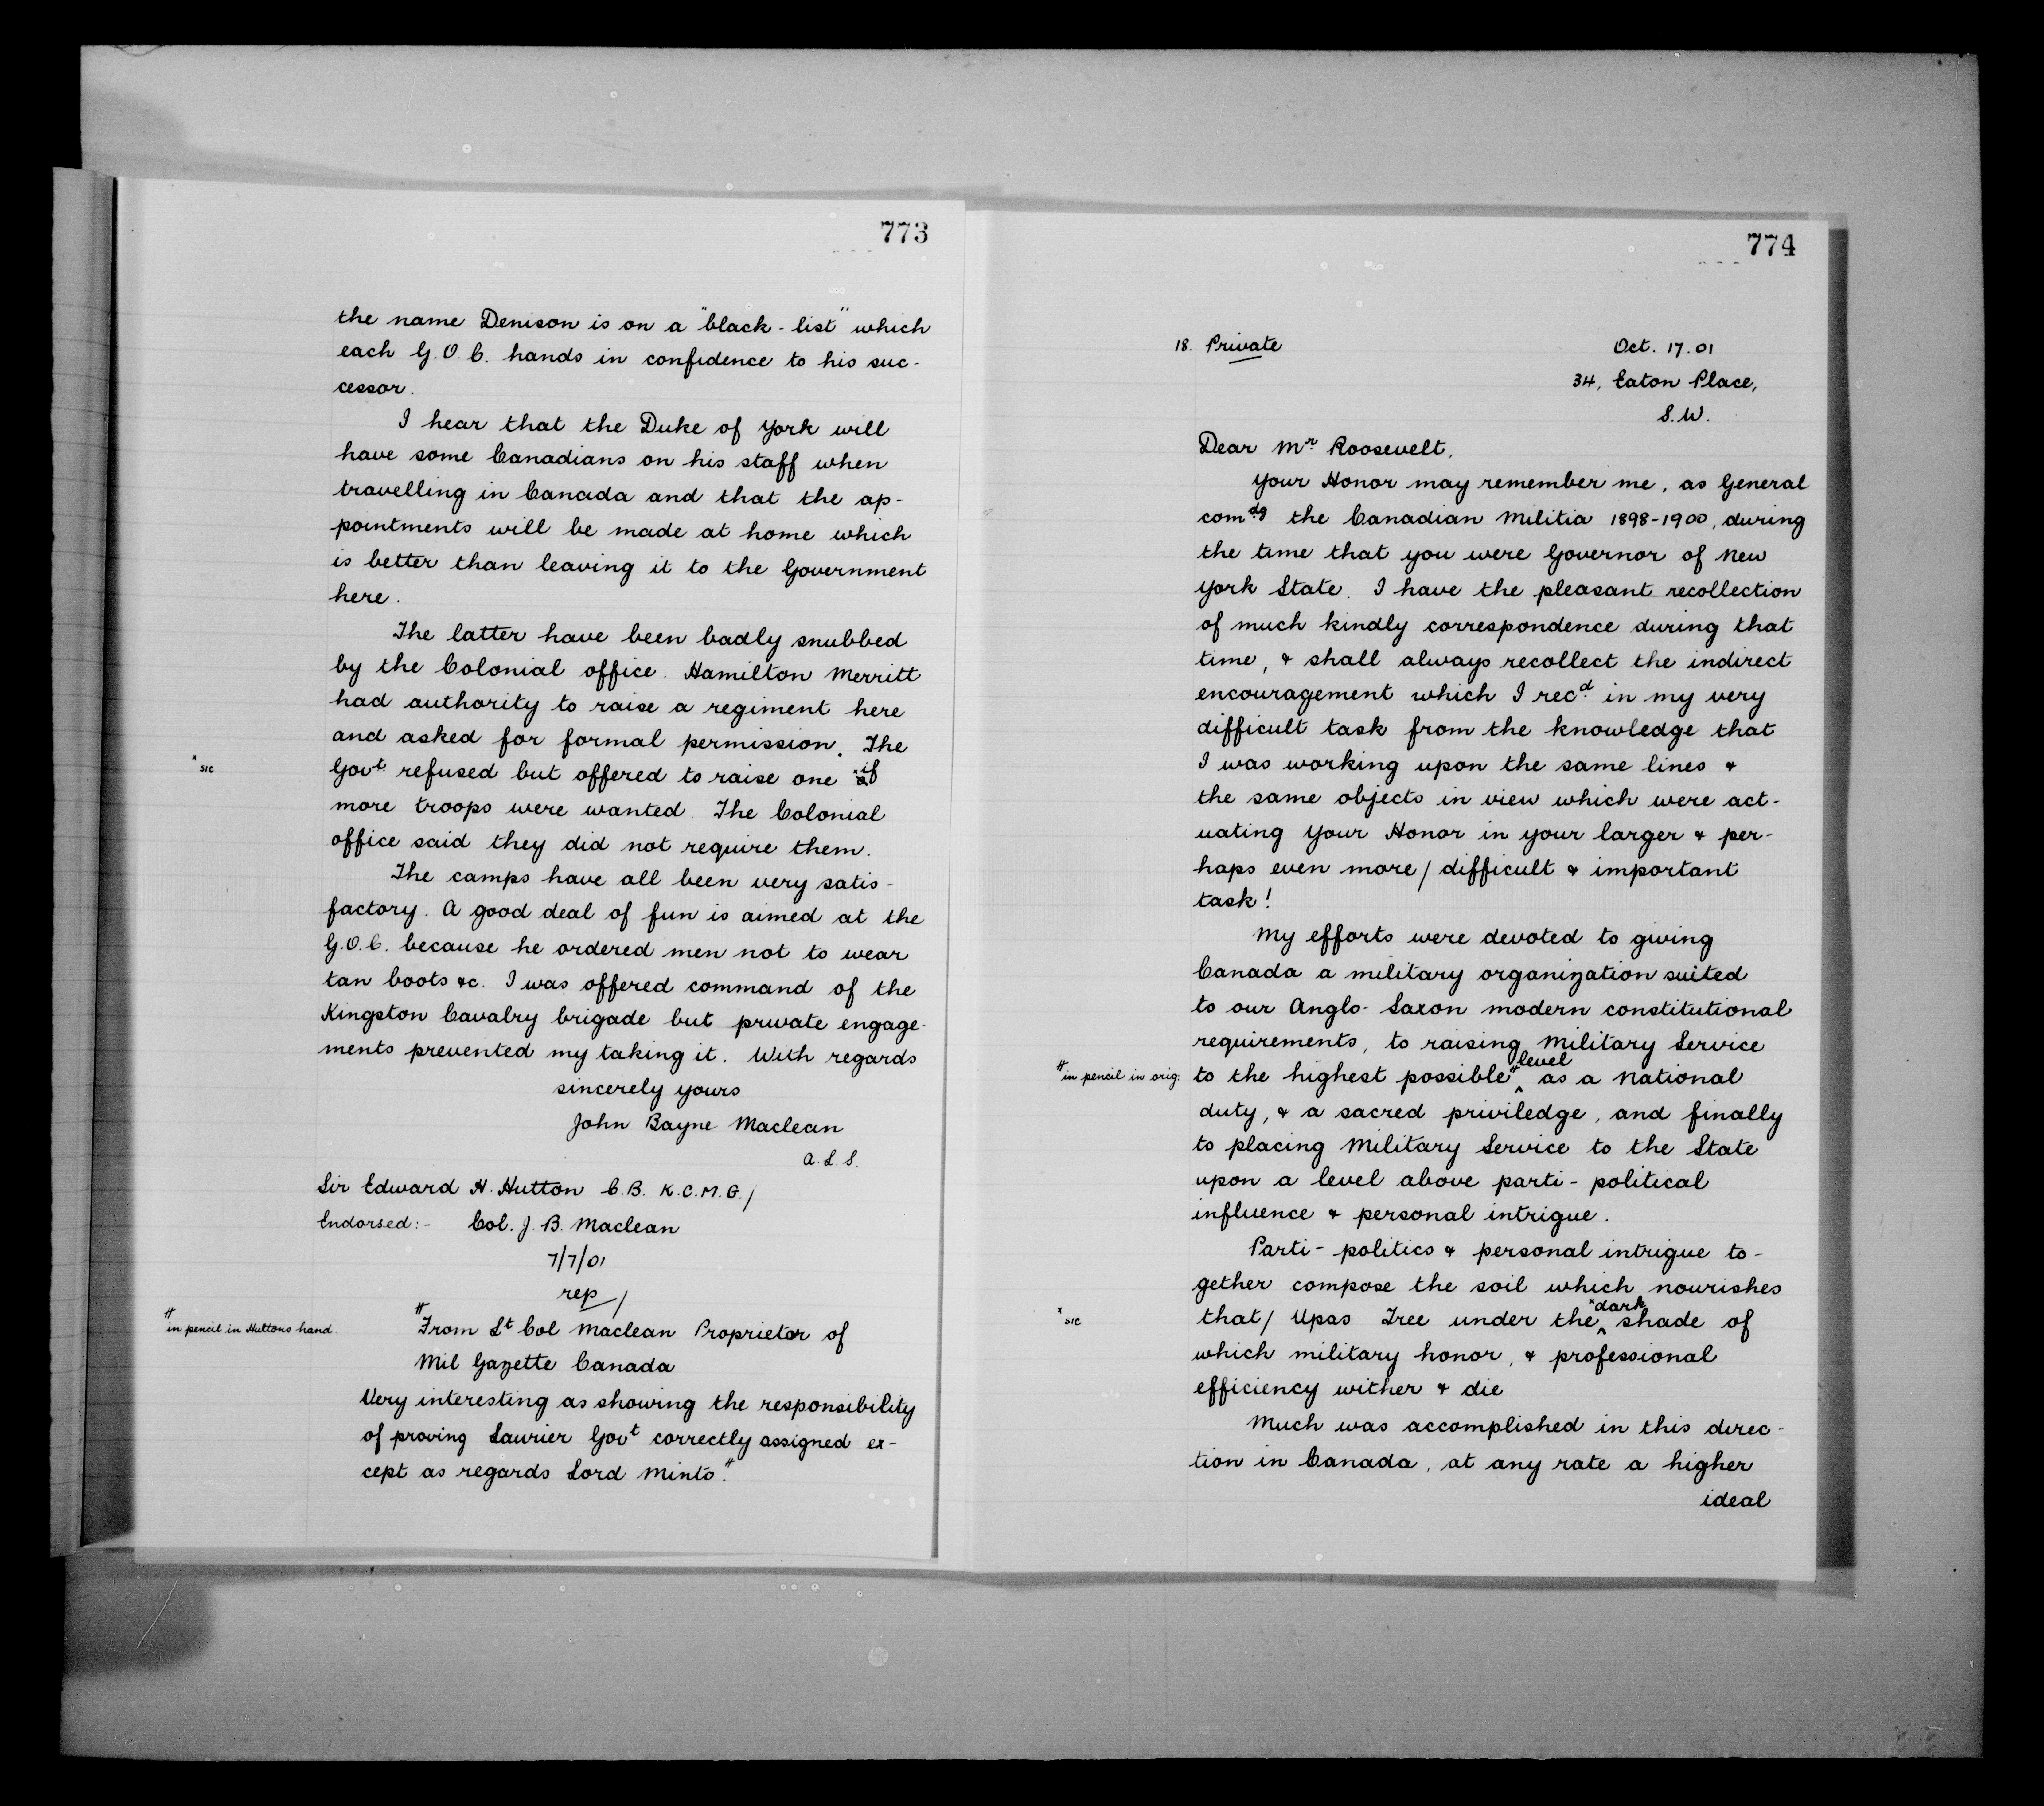 773
the name Denison is on a "black-list" which
each G.O.C. hands in confidence to his suc-
cessor.
I hear that the Duke of York will
have some Canadians on his staff when
travelling in Canada and that the ap-
pointments will be made at home which
is better than leaving it to the Government
here.
The latter have been badly snubbed
by the Colonial office. Hamilton Merritt
had authority to raise a regiment here
and asked for formal permission. The
x sic
Govt. refused but offered to raise one x if
more troops were wanted. The Colonial
office said they did not require them.
The camps have all been very satis-
factory. A good deal of fun is aimed at the
G.O.C. because he ordered men not to wear
tan boots &c. I was offered command of the
Kingston Cavalry brigade but private engage-
ments prevented my taking it. With regards
sincerely yours
John Bayne Maclean
A.L.S.
Sir Edward H. Hutton C.B. K.C.M.G./
Endorsed:- Col. J. B. Maclean
7/7/01
rep/
# in pencil in Huttons hand.
# From Lt Col Maclean Proprietor of
Mil Gazette Canada
Very interesting as showing the responsibility
of proving Laurier Govt correctly assigned ex-
cept as regards Lord Minto. #
774
18. Private Oct. 17.01
34, Eaton Place,
S.W.
Dear Mr. Roosevelt,
Your Honor may remember me, as General
comdg the Canadian Militia 1898-1900, during
the time that you were Governor of New
York State. I have the pleasant recollection
of much kindly correspondence during that
time, & shall always recollect the indirect
encouragement which I recd. in my very
difficult task from the knowledge that
I was working upon the same lines &
the same objects in view which were act-
uating Your Honor in your larger & per-
haps even more/ difficult & important
task!
My efforts were devoted to giving
Canada a military organization suited
to our Anglo-Saxon modern constitutional
requirements, to raising Military Service
# in pencil in orig:
to the highest possible # level as a National
duty, & a sacred priviledge, and finally
to placing Military Service to the State
upon a level above parti-political
influence & personal intrigue.
Parti-politics & personal intrigue to-
gether compose the soil which nourishes
x sic
that/ Upas Tree under the x dark shade of
which military honor, & professional
efficiency wither & die
Much was accomplished in this direc-
tion in Canada, at any rate a higher
ideal